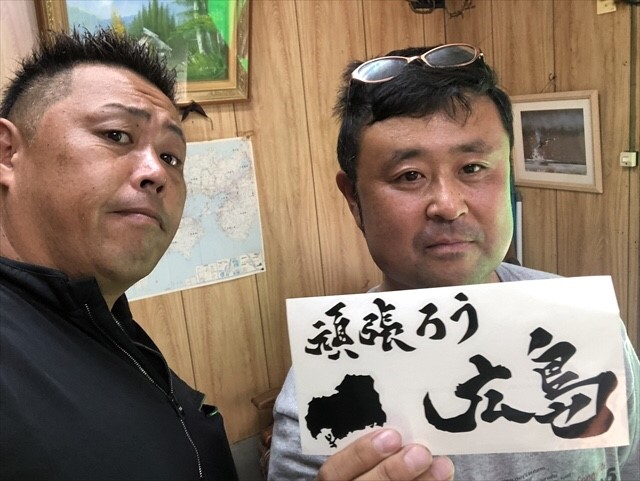 頑張ろう
広島